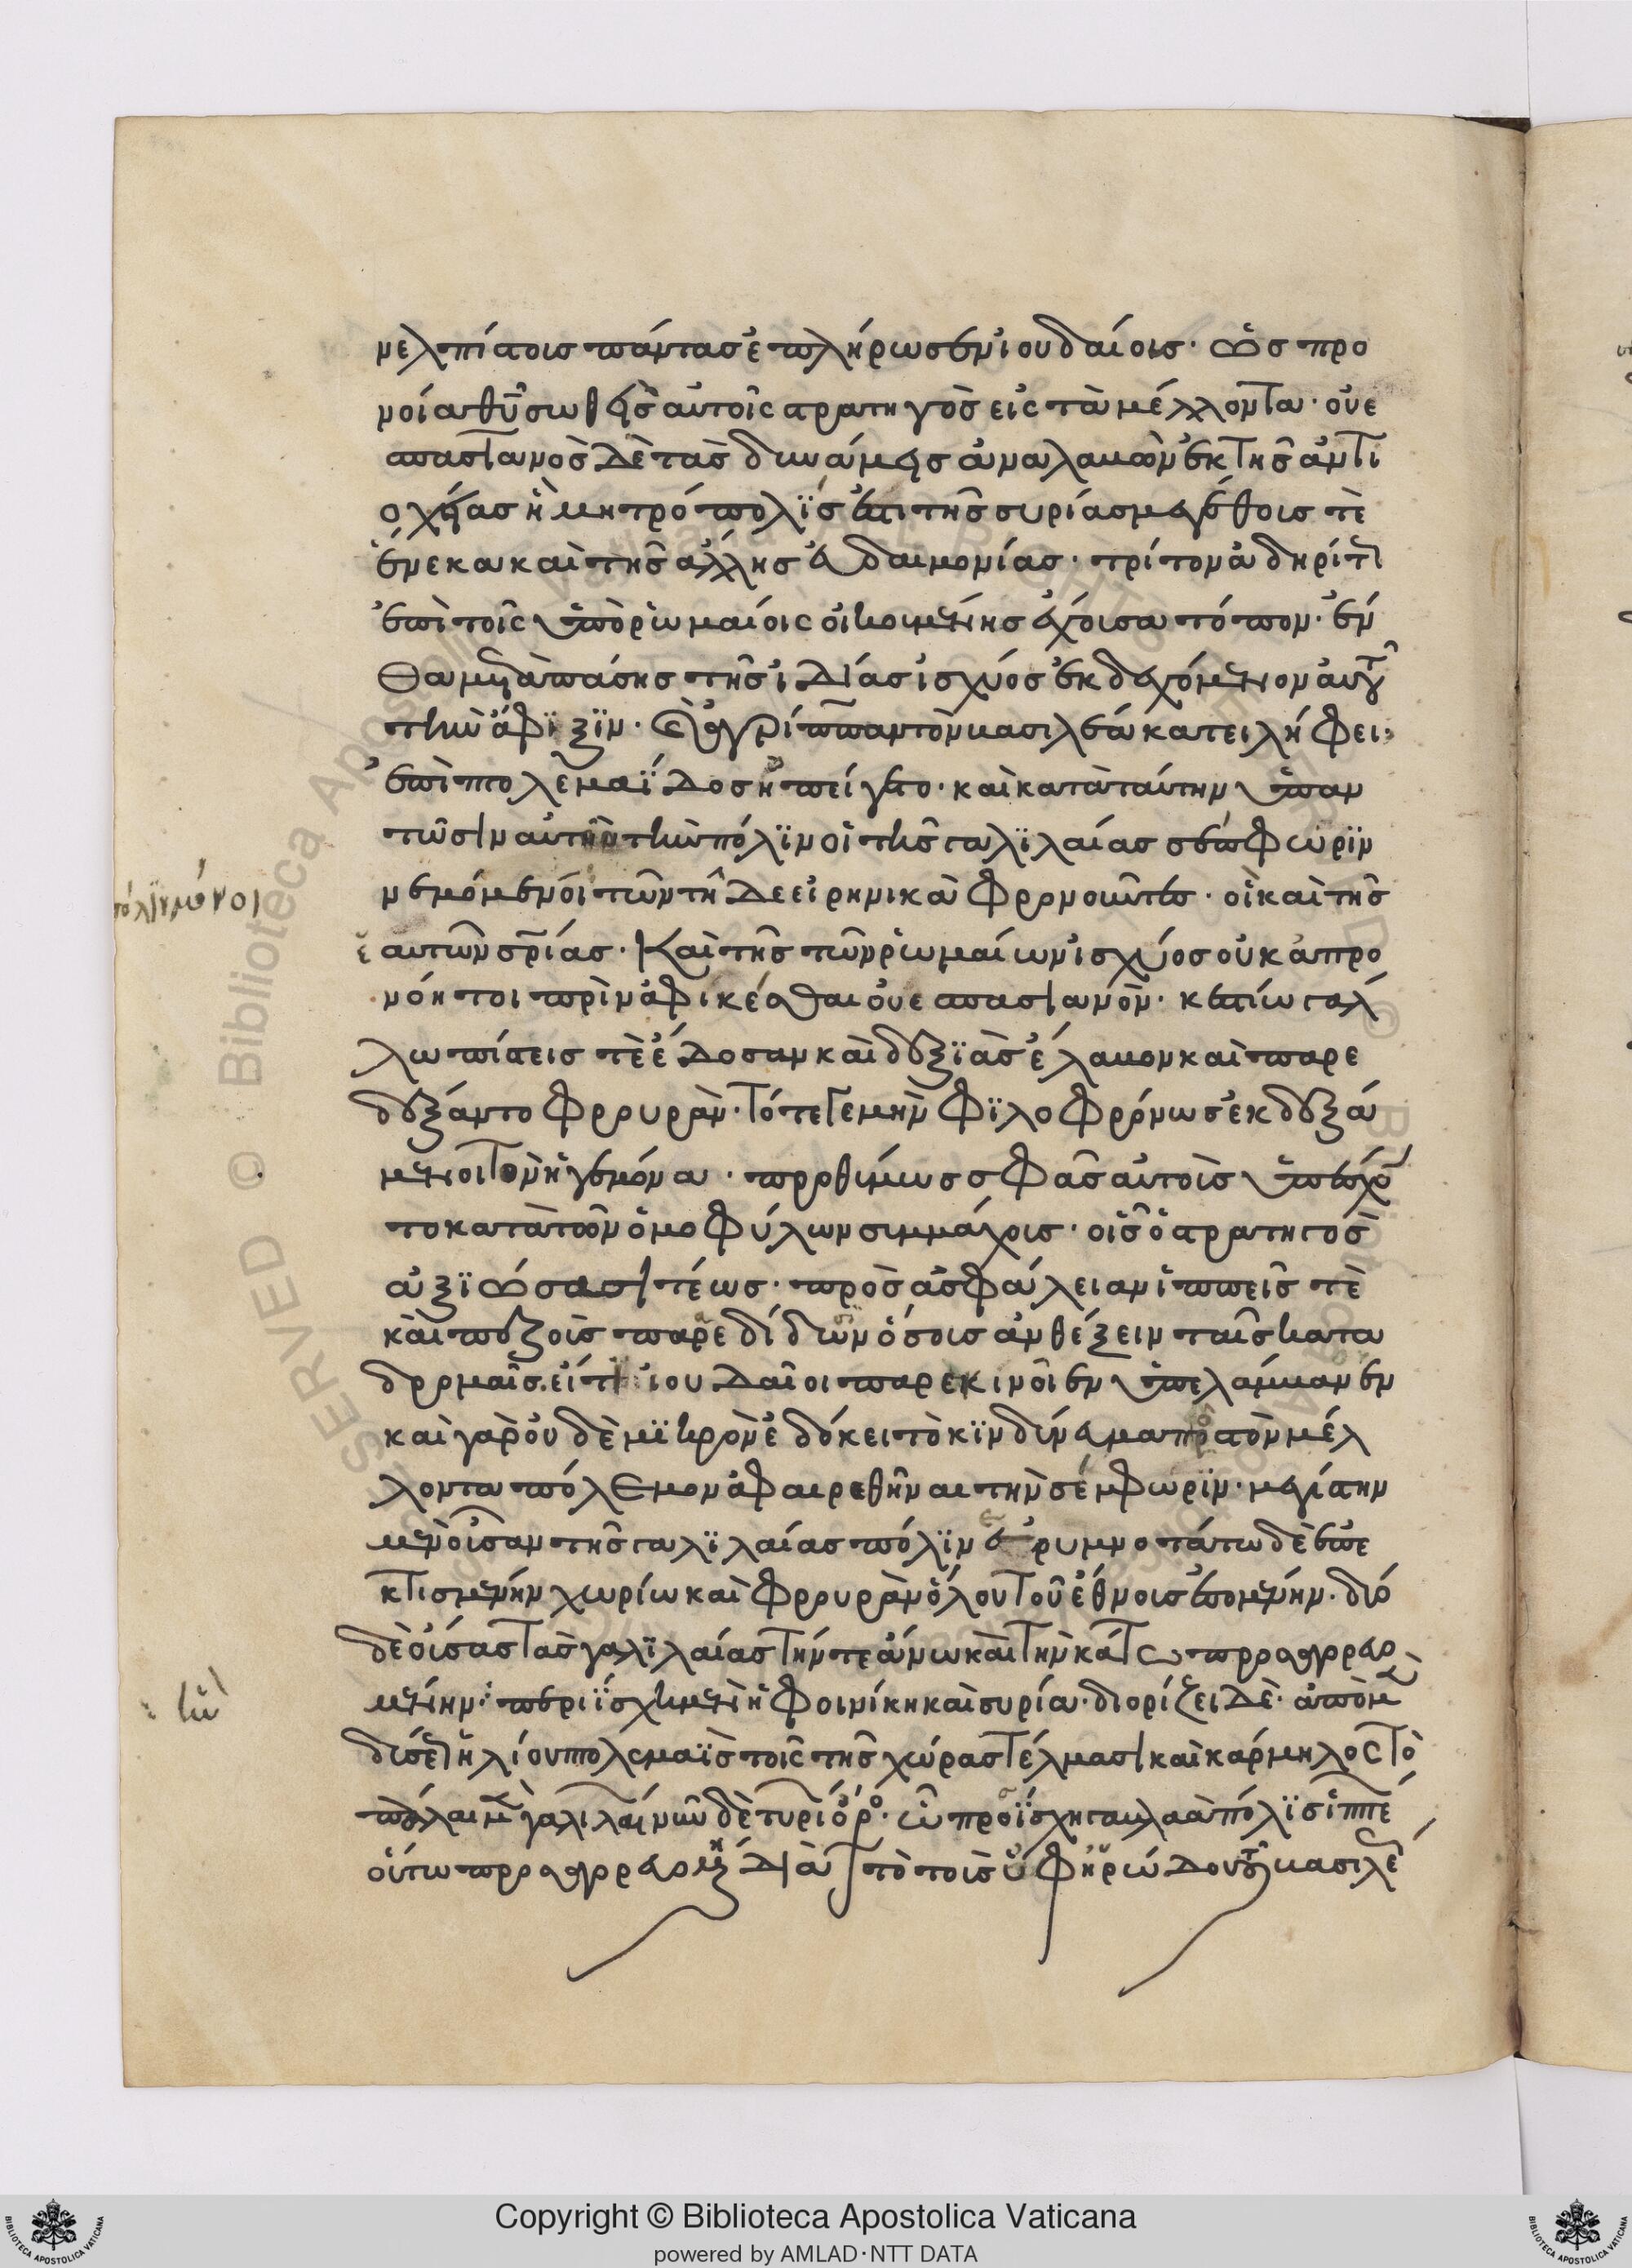 νελπίστοις πάντας ἐπλήρωσεν ἰουδαίοις· ὡς προ
νοία θῦ σωθεὶς αὐτοῖς στρατηγὸς εἰς τὰ μέλλοντα· οὐε
σπασιανὸς δὲ τὰς δυνάμεις ἀναλαβὼν ἐκ τῆς ἀντι
οχείας ἡ μητρόπολϊς ἐστι τῆς συρίας μεγέθους τὲ
ἕνεκα καὶ τῆς ἄλλης εὐδαιμονίας· τρίτον ἀδηρίτως
ἐπὶ τοῖς ὑπὸ ῥωμαίοις οἰκουμένης ἔχουσα τόπον· ἔν
θα μετὰ πάσης τῆς ἰδίας ἰσχύος ἐκδεχόμενον αὐτοῦ
τὴν ἄφϊξϊν· καὶ ἀγρίππαν τὸν βασιλέα κατειλήφει·
ἐπὶ πτολεμαΐδος ἠπείγετο· καὶ κατὰ ταύτην ὑπαν
τῶσιν αὐτὴν τὴν πόλϊν οἱ τῆς γαλϊλαίας σέπφωρϊν
νεμόμενοι τῶν τῆδε εἰρηνικὰ φρονοῦντες· οἳ καὶ τῆς
ἑαυτῶν σρίας· καὶ τῆς τῶν ῥωμαίων ἰσχύος οὐκ ἀπρο
νόητοι πρὶν ἀφικέσθαι οὐεσπασιανόν· κεστίω γάλ
λω πίστεις τὲ ἔδοσαν καὶ δεξϊὰς ἔλαβον καὶ παρε
δέξαντο φρουράν· τότε γε μὴν φϊλοφρόνως ἐκδεξά
μενοι τὸν ἡγεμόνα· προθύμως σφᾶς αὐτοὺς ὑπέσχον
το κατὰ τῶν ὁμοφύλων συμμάχους· οἷς ὁ στρατηγὸς
ἀξϊώσασι τέως· πρὸς ἀσφάλειαν ἱππεῖς τὲ
καὶ πεζοὺς παρεδίδων ὅσους ἀνθέξειν ταῖς κατα
δρομαῖς εἴ τι ἰουδαῖοι παρεκινοῖεν ὑπελάμβανεν
καὶ γὰρ οὐδὲ μϊκρὸν ἐδόκει τὸ κϊνδύνευμα πρὸς τὸν μέλ
λοντα πόλεμον ἀφαιρεθῆναι τὴν σέμφωρϊν· μεγίστην
μὲν οὖσαν τῆς γαλϊλαίας πόλϊν ἐρυμνοτάτω δὲ ἐπε
κτισμένην χωρίω καὶ φρουρὰν ὅλου τοῦ ἔθνους ἐσομένην· δύο
δὲ οὔσας τὰς γαλϊλαίας τήν τε ἄνω καὶ τὴν κάτω προσαγορευο
μένην· περιΐσχει μὲν ἡ φοινίκη καὶ συρία· διορίζει δὲ· ἀπὸ μὲν
δύσεως ἡλίου πτολεμαῒς τοῖς τῆς χώρας τέλμασι καὶ κάρμηλος τὸ
πάλαι μὲν γαλιλαίων νῦν δὲ τυρίων ὄρος· ὧ προσΐσχει γαβαὰ πόλϊς ἱππέων
οὕτω προσαγορευομένη διὰ τὸ τοὺς ὑφ' ἡρώδου τοῦ βασιλέως